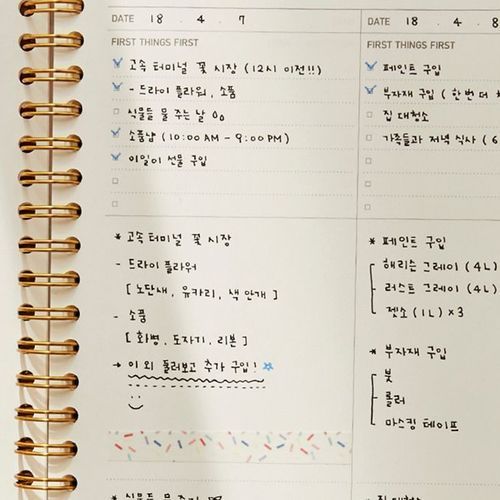 DATE 18 . 4 . 7
FIRST THINGS FIRST
고속 터미널 꽃 시장 (12시 이전!!)
- 드라이 플라워, 소품
식물들 물 주는 날
소품샵 (10:00 AM - 9:00 PM)
선물 구입
* 고속 터미널 꽃 시장
- 드라이 플라워
[ 노단새, 유카리, 색 안개 ]
- 소품
[ 화병, 도자기, 리본 ]
→ 이 외 둘러보고 추가 구입!
DATE 18 . 4 . 8
FIRST THINGS FIRST
페인트 구입
부자재 구입 ( 한 번 더
집 대청소
가족들과 저녁 식사 ( 6
* 페인트 구입
해리슨 그레이 (4L)
러스트 그레이 (4L)
젯소 (1L) × 3
* 부자재 구입
붓
롤러
마스킹 테이프